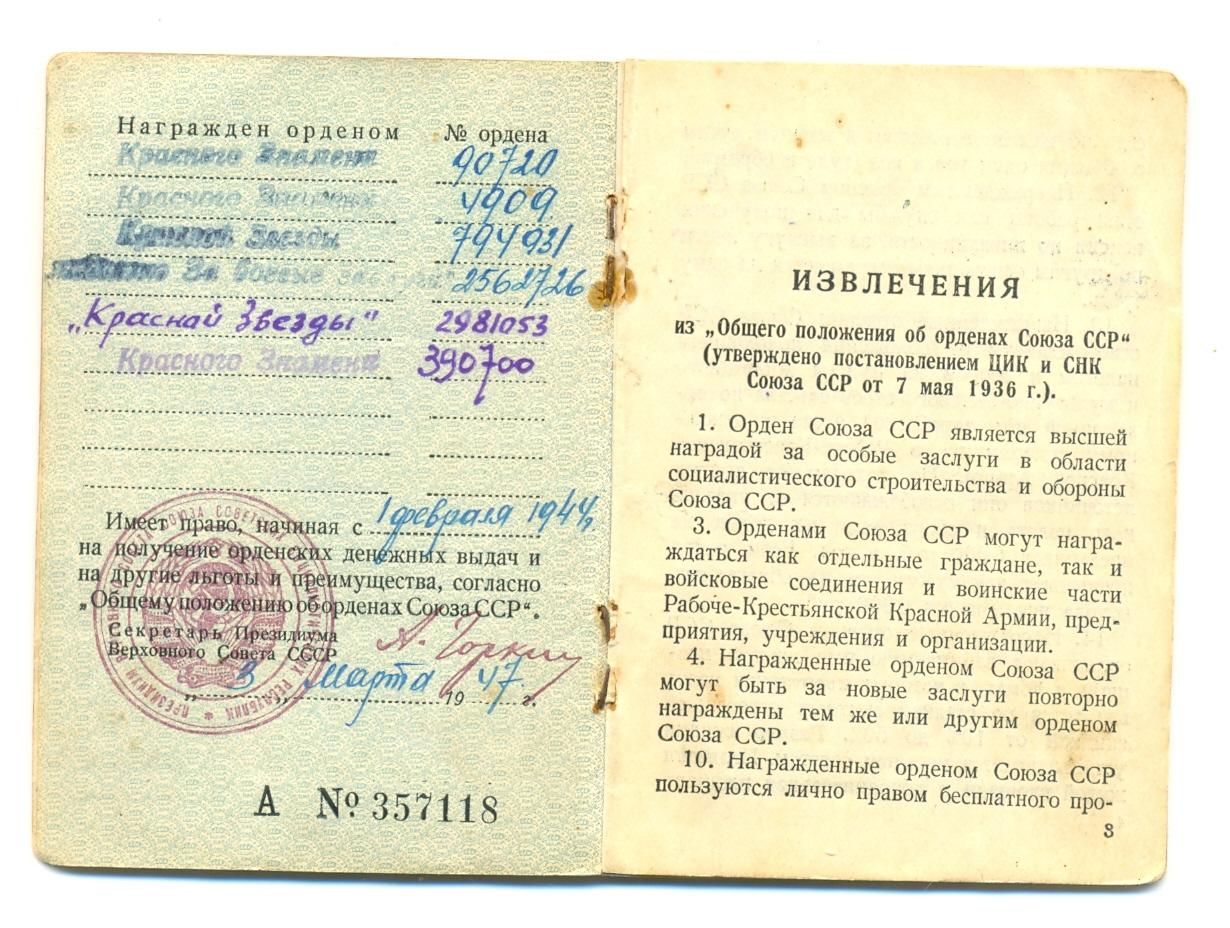 Награжден орденом № ордена
Красного Знамени 90720
Красного Знамени 4909
Красной Звезды 794931
За боевые заслуги" 2562726
„Красной Звезды" 2981053
Красного Знамени 390700
Имеет право, начиная с 1 февраля 1944,
на получение орденских денежных выдач и
на другие льготы и преимущества, согласно
„Общему положению об орденах Союза ССР“.
Секретарь Президиума
Верховного Совета СССР А. Горкин
„ 3 „ Марта 19 47 г.
А № 357118
ИЗВЛЕЧЕНИЯ
из „Общего положения об орденах Союза ССР“
(утверждено постановлением ЦИК и СНК
Союза ССР от 7 мая 1936 г.).
1. Орден Союза ССР является высшей
наградой за особые заслуги в области
социалистического строительства и обороны
Союза ССР.
3. Орденами Союза ССР могут награ-
ждаться как отдельные граждане, так и
войсковые соединения и воинские части
Рабоче-Крестьянской Красной Армии, пред-
приятия, учреждения и организации.
4. Награжденные орденом Союза ССР
могут быть за новые заслуги повторно
награждены тем же или другим орденом
Союза ССР.
10. Награжденные орденом Союза ССР
пользуются лично правом бесплатного про-
3